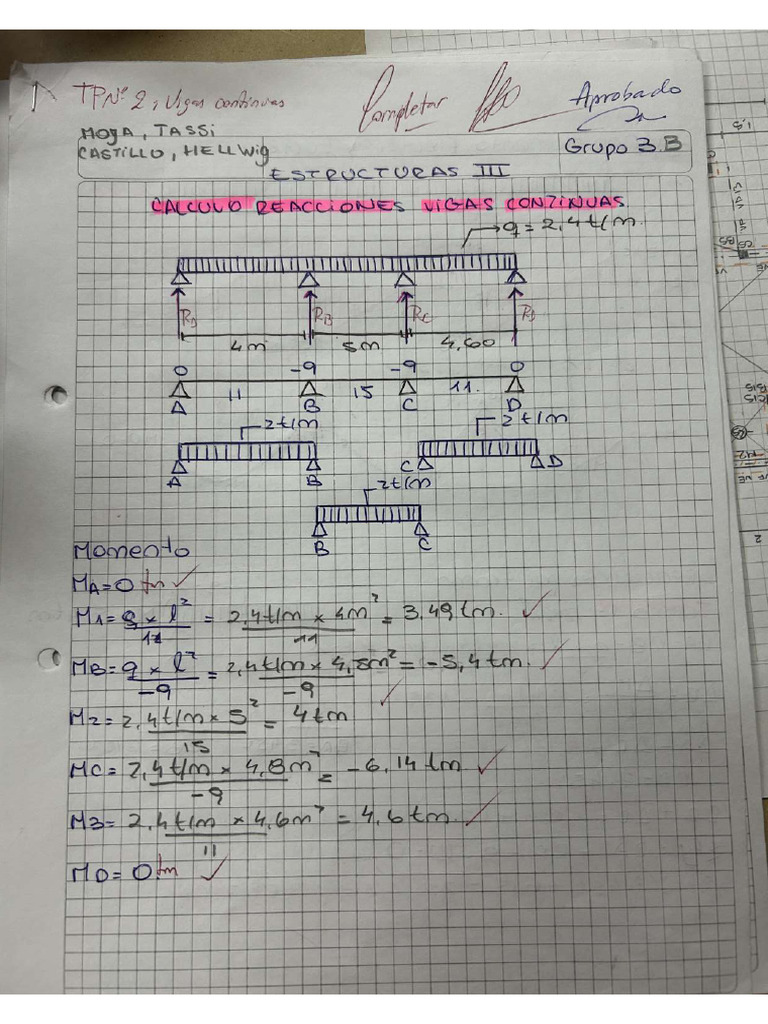 TP Nº 2, Vigas continuas
Completar
Aprobado
MOYA, TASSI
CASTILLO, HELLWIG
Grupo 3.B
ESTRUCTURAS III
CALCULO REACCIONES VIGAS CONTINUAS
q = 2,4 t/m.
RA RB RC RD
4m 5m 4,60
0 -9 -9 0
11 15 11.
A B C D
2t/m 2t/m
A B C D
2t/m
B C
Momento
MA = 0 tm ✓
M1 = q x l² = 2,4t/m x 4m² = 3,49 tm. ✓
11 11
MB = q x l² = 2,4t/m x 4,5m² = -5,4 tm. ✓
-9 -9
M2 = 2,4t/m x 5² = 4 tm ✓
15
MC = 2,4t/m x 4,8m² = -6,14 tm ✓
-9
M3 = 2,4t/m x 4,6m² = 4,6 tm. ✓
11
MD = 0 tm ✓